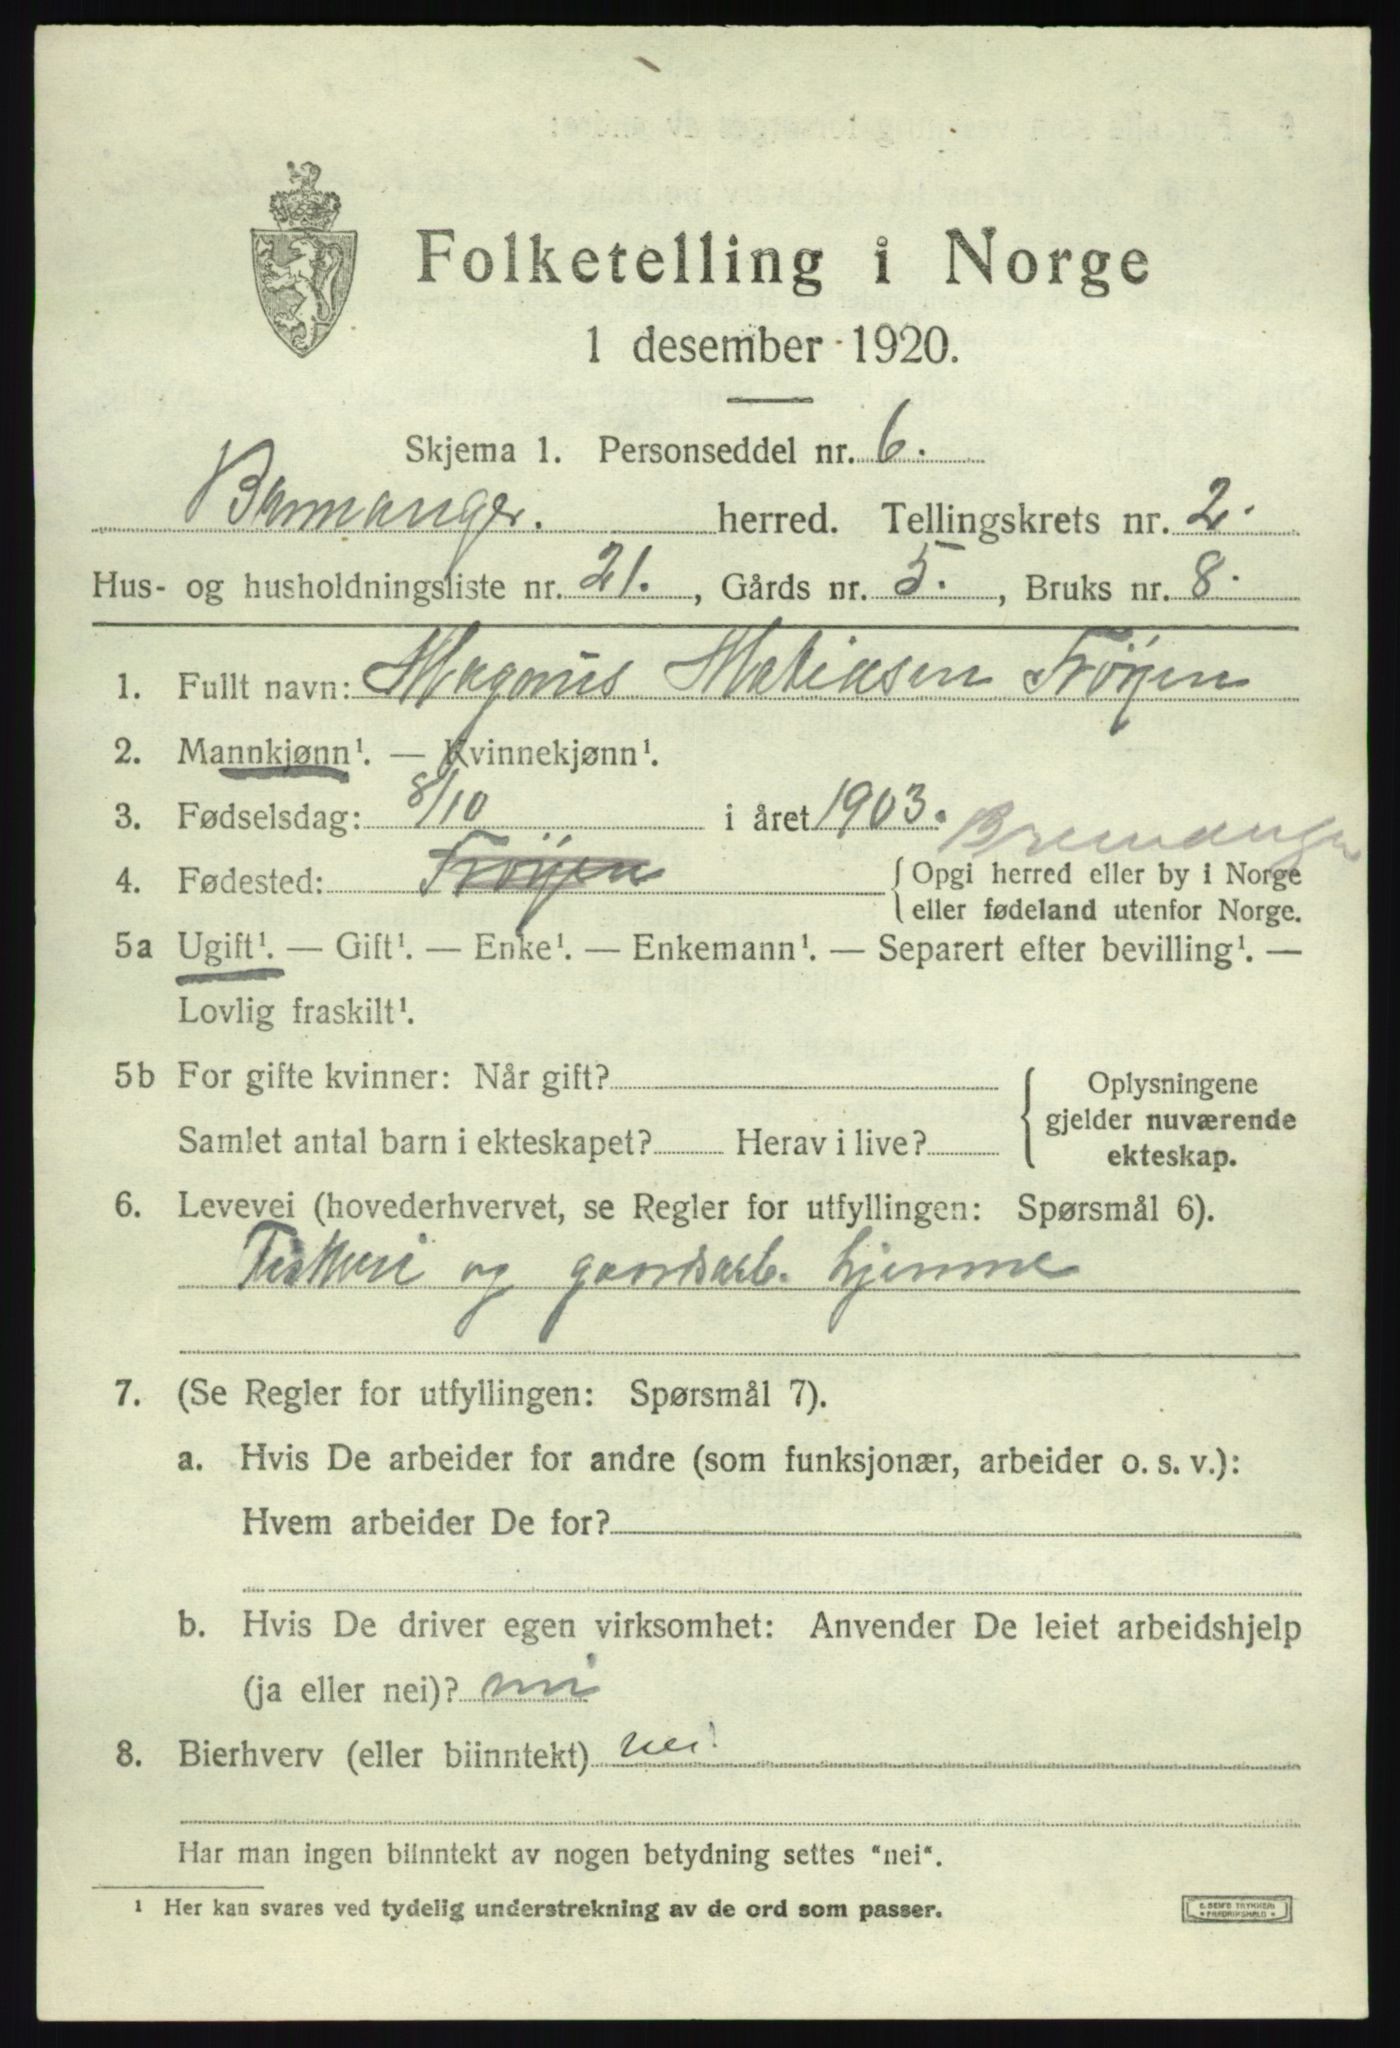 Folketelling i Norge
1 desember 1920.
Skjema 1. Personseddel nr. 6.
Bremanger. herred. Tellingskrets nr. 2.
Hus- og husholdningsliste nr. 21. , Gårds nr. 5. , Bruks nr. 8.
1. Fullt navn: Magnus Matiasen Frøyen
2. Mannkjønn¹. — Kvinnekjønn¹.
3. Fødselsdag: 8/10 i året 1903.
Bremanger
4. Fødested: Frøyen { Opgi herred eller by i Norge
eller fødeland utenfor Norge.
5a Ugift¹. — Gift¹. — Enke¹. — Enkemann¹. — Separert efter bevilling¹. —
Lovlig fraskilt¹.
5b For gifte kvinner: Når gift? { Oplysningene
gjelder nuværende
Samlet antal barn i ekteskapet? Herav i live? ekteskap.
6. Levevei (hovederhvervet, se Regler for utfyllingen: Spørsmål 6).
Fiskeri og gaardsarb. hjemme
7. (Se Regler for utfyllingen: Spørsmål 7).
a. Hvis De arbeider for andre (som funksjonær, arbeider o. s. v.):
Hvem arbeider De for?
b. Hvis De driver egen virksomhet: Anvender De leiet arbeidshjelp
(ja eller nei)? nei
8. Bierhverv (eller biinntekt) nei
Har man ingen biinntekt av nogen betydning settes "nei".
¹ Her kan svares ved tydelig understrekning av de ord som passer.
E. SEM'S TRYKKERI
* FREDRIKSHALD *